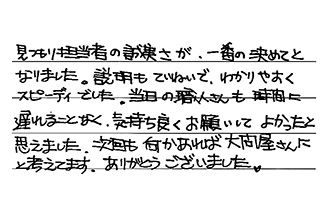 見つもり担当者の誠実さが、一番の決めてと
なりました。説明もていねいで、わかりやすく
スピーディでした。当日の職人さんも時間に
遅れることなく、気持ち良くお願いして よかったと
思えました。次回も何かあれば大問屋さんに
と考えてます。ありがとうございました。